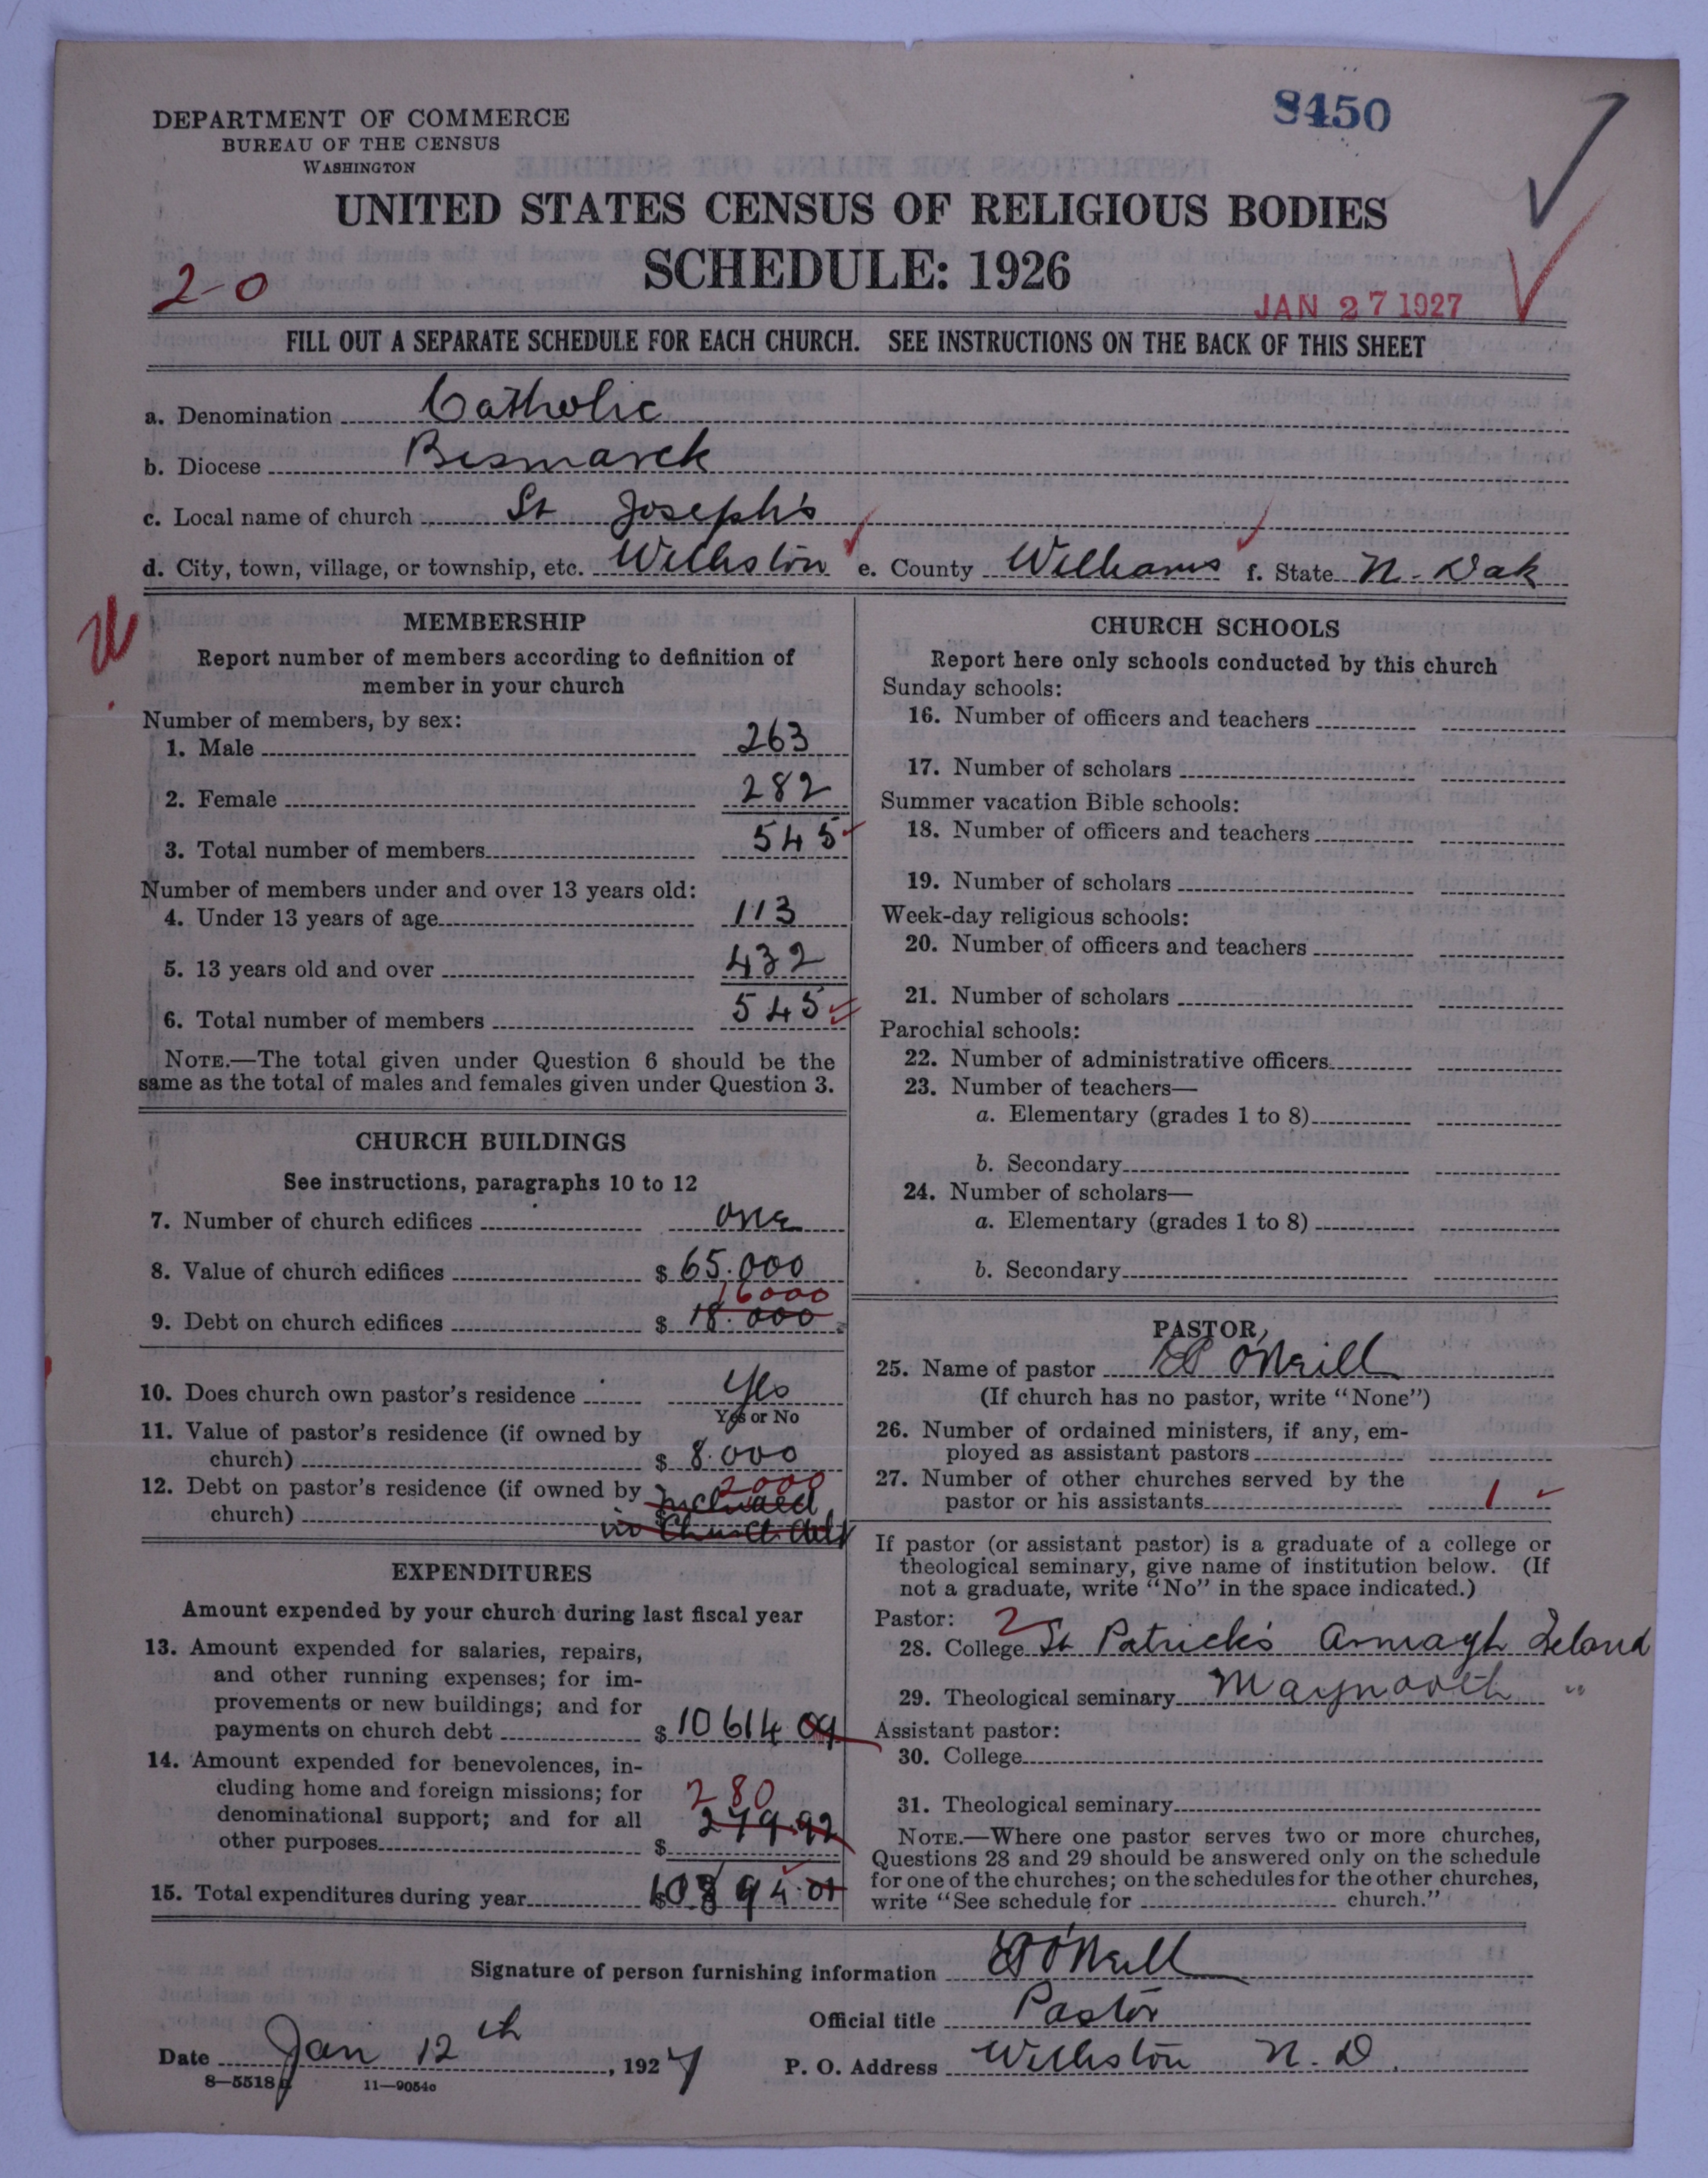 8450
DEPARTMENT OF COMMERCE
BUREAU OF THE CENSUS
WASHINGTON
UNITED STATES CENSUS OF RELIGIOUS BODIES
SCHEDULE: 1926
2-0
JAN 27 1927
FILL OUT A SEPARATE SCHEDULE FOR EACH CHURCH. SEE INSTRUCTIONS ON THE BACK OF THIS SHEET
a. Denomination Catholic
b. Diocese Bismarck
c. Local name of church St Joseph's
d. City, town, village, or township, etc. Williston e. County Williams f. State N. Dak
MEMBERSHIP
Report number of members according to definition of
member in your church
Number of members, by sex:
1. Male 263
2. Female 282
3. Total number of members 545
Number of members under and over 13 years old:
4. Under 13 years of age 113
5. 13 years old and over 432
6. Total number of members 545
NOTE.—The total given under Question 6 should be the
same as the total of males and females given under Question 3.
CHURCH BUILDINGS
See instructions, paragraphs 10 to 12
7. Number of church edifices one
8. Value of church edifices $ 65.000
16000
9. Debt on church edifices $ 18.000
10. Does church own pastor's residence yes
Yes or No
11. Value of pastor's residence (if owned by
church) $ 8.000
2000
12. Debt on pastor's residence (if owned by Included
church) in Church debt
EXPENDITURES
Amount expended by your church during last fiscal year
13. Amount expended for salaries, repairs,
and other running expenses; for im-
provements or new buildings; and for
payments on church debt $ 10614.09
14. Amount expended for benevolences, in-
cluding home and foreign missions; for 280
denominational support; and for all 279.92
other purposes $
15. Total expenditures during year $ 10894.01
CHURCH SCHOOLS
Report here only schools conducted by this church
Sunday schools:
16. Number of officers and teachers
17. Number of scholars
Summer vacation Bible schools:
18. Number of officers and teachers
19. Number of scholars
Week-day religious schools:
20. Number of officers and teachers
21. Number of scholars
Parochial schools:
22. Number of administrative officers
23. Number of teachers—
a. Elementary (grades 1 to 8)
b. Secondary
24. Number of scholars—
a. Elementary (grades 1 to 8)
b. Secondary
PASTOR
25. Name of pastor O'Neill
(If church has no pastor, write "None")
26. Number of ordained ministers, if any, em-
ployed as assistant pastors
27. Number of other churches served by the
pastor or his assistants 1
If pastor (or assistant pastor) is a graduate of a college or
theological seminary, give name of institution below. (If
not a graduate, write "No" in the space indicated.)
Pastor: 2
28. College St Patrick's Armagh Ireland
29. Theological seminary Maynooth "
Assistant pastor:
30. College
31. Theological seminary
NOTE.—Where one pastor serves two or more churches,
Questions 28 and 29 should be answered only on the schedule
for one of the churches; on the schedules for the other churches,
write "See schedule for church."
Signature of person furnishing information O'Neill
Official title Pastor
Date Jan 12th, 1927 P. O. Address Williston N. D.
8—5518 11—9054c